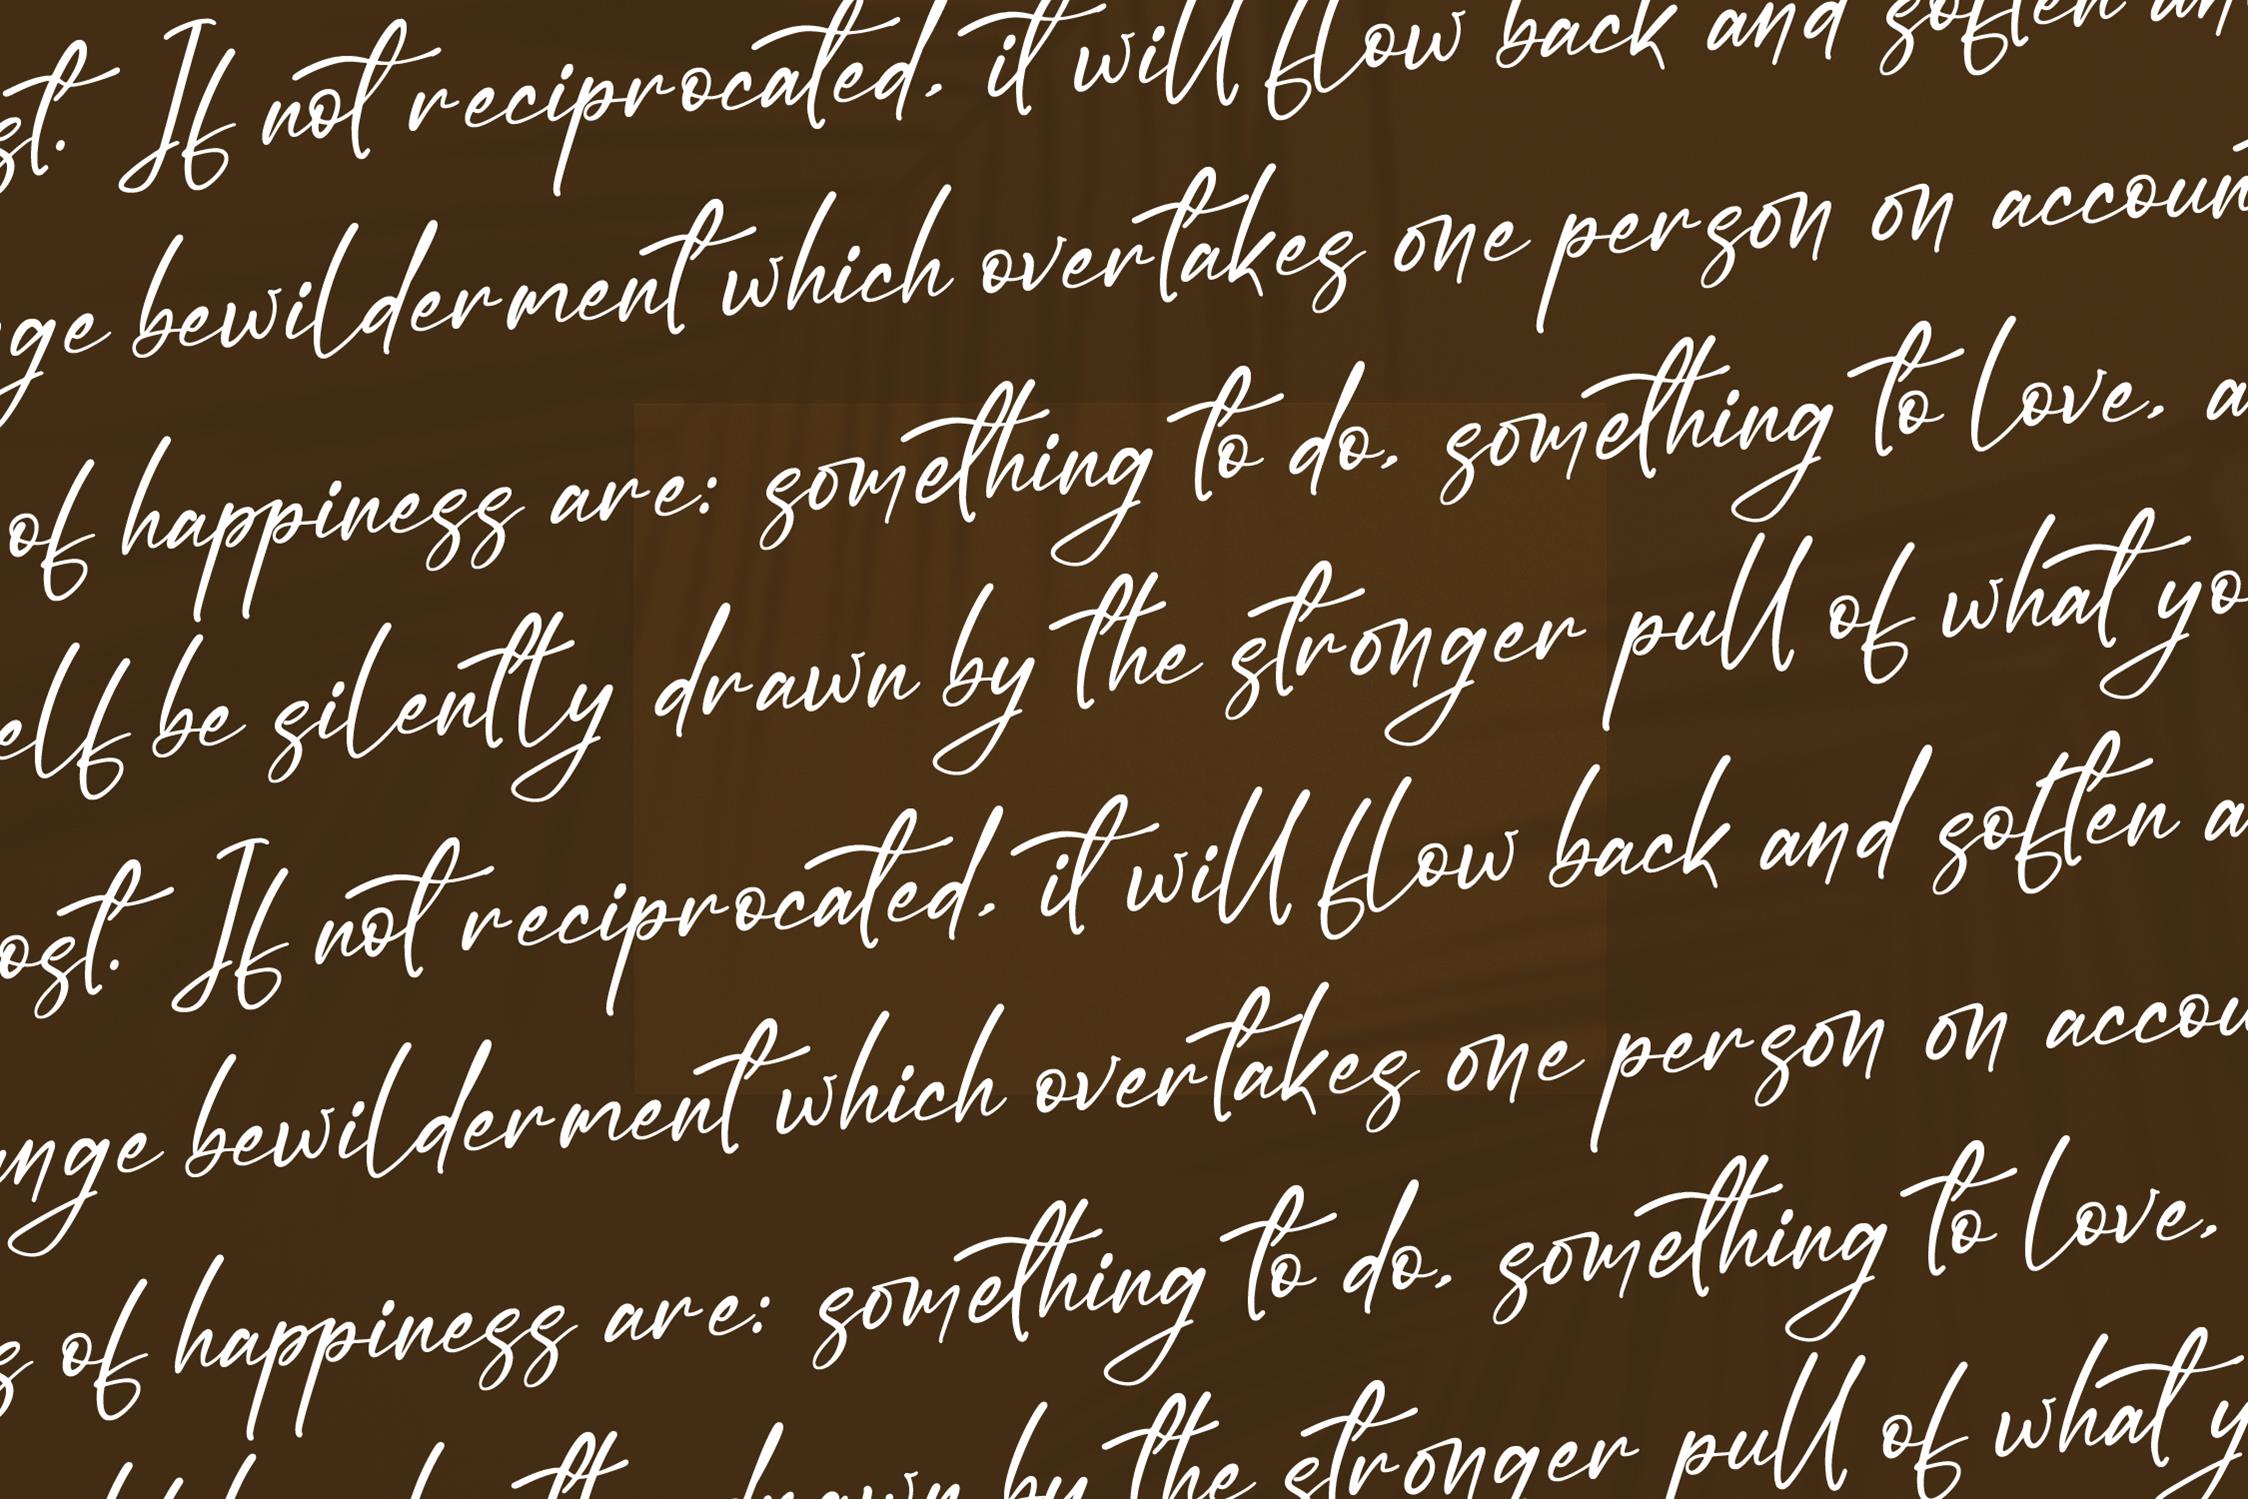 st. If not reciprocated, it will flow back and soften an
ge bewilderment which overtakes one person on accoun
of happiness are: something to do, something to love, a
elf be silently drawn by the stronger pull of what yo
ost. If not reciprocated, it will flow back and soften a
nge bewilderment which overtakes one person on accou
s of happiness are: something to do, something to love,
drawn by the stronger pull of what y